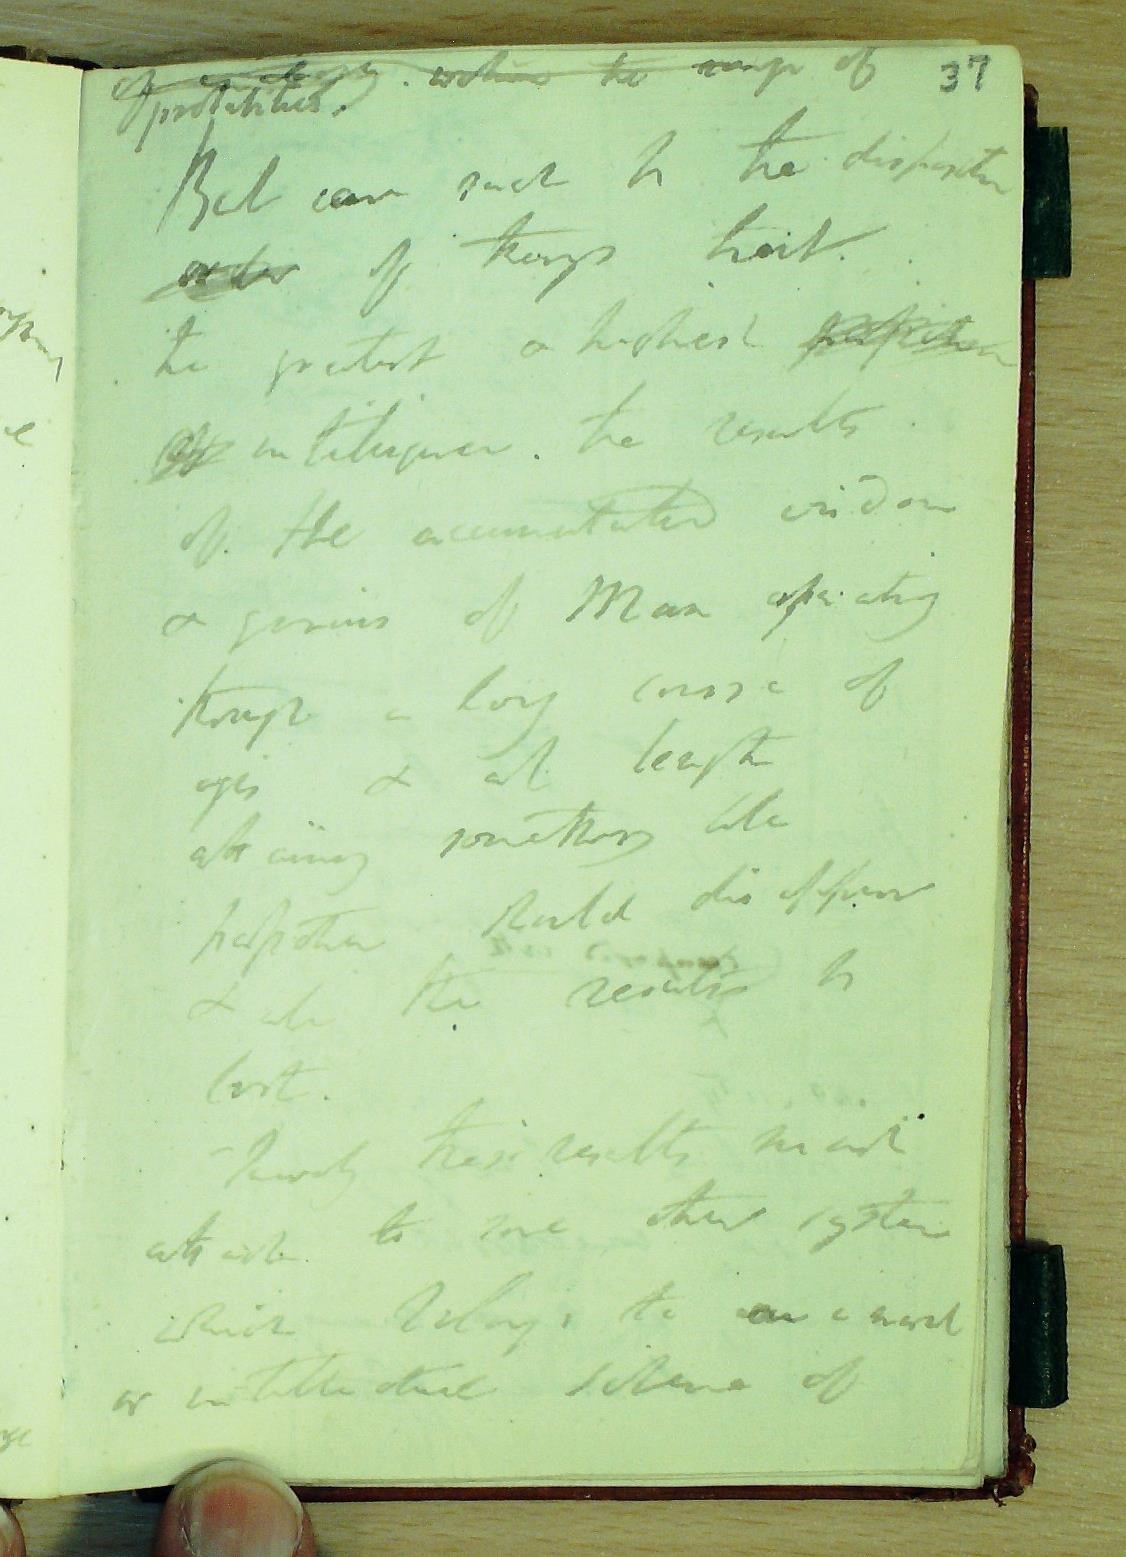 37
of within the range of
probabilities.
But can such be the disposition
order of things that.
the greatest & highest
of intelligence. the results
of the accumulated wisdom
& genius of Man operating
through a long course of
ages & at length
attaining something like
perfection should disappear
& all the results be
lost.
Surely these results must
attach to some other system
which belongs to a moral
or intellectual scheme of